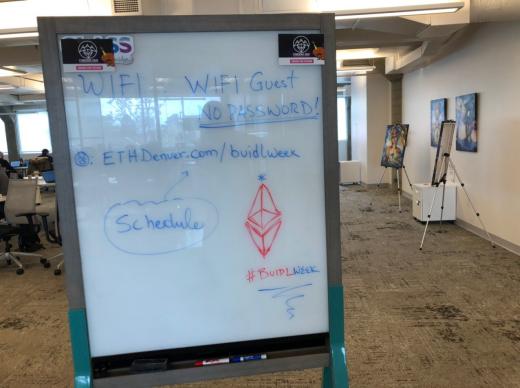 WIFI WIFI Guest
NO PASSWORD!
ETHDenver.com/buidlweek
Schedule
#BUIDLWEEK